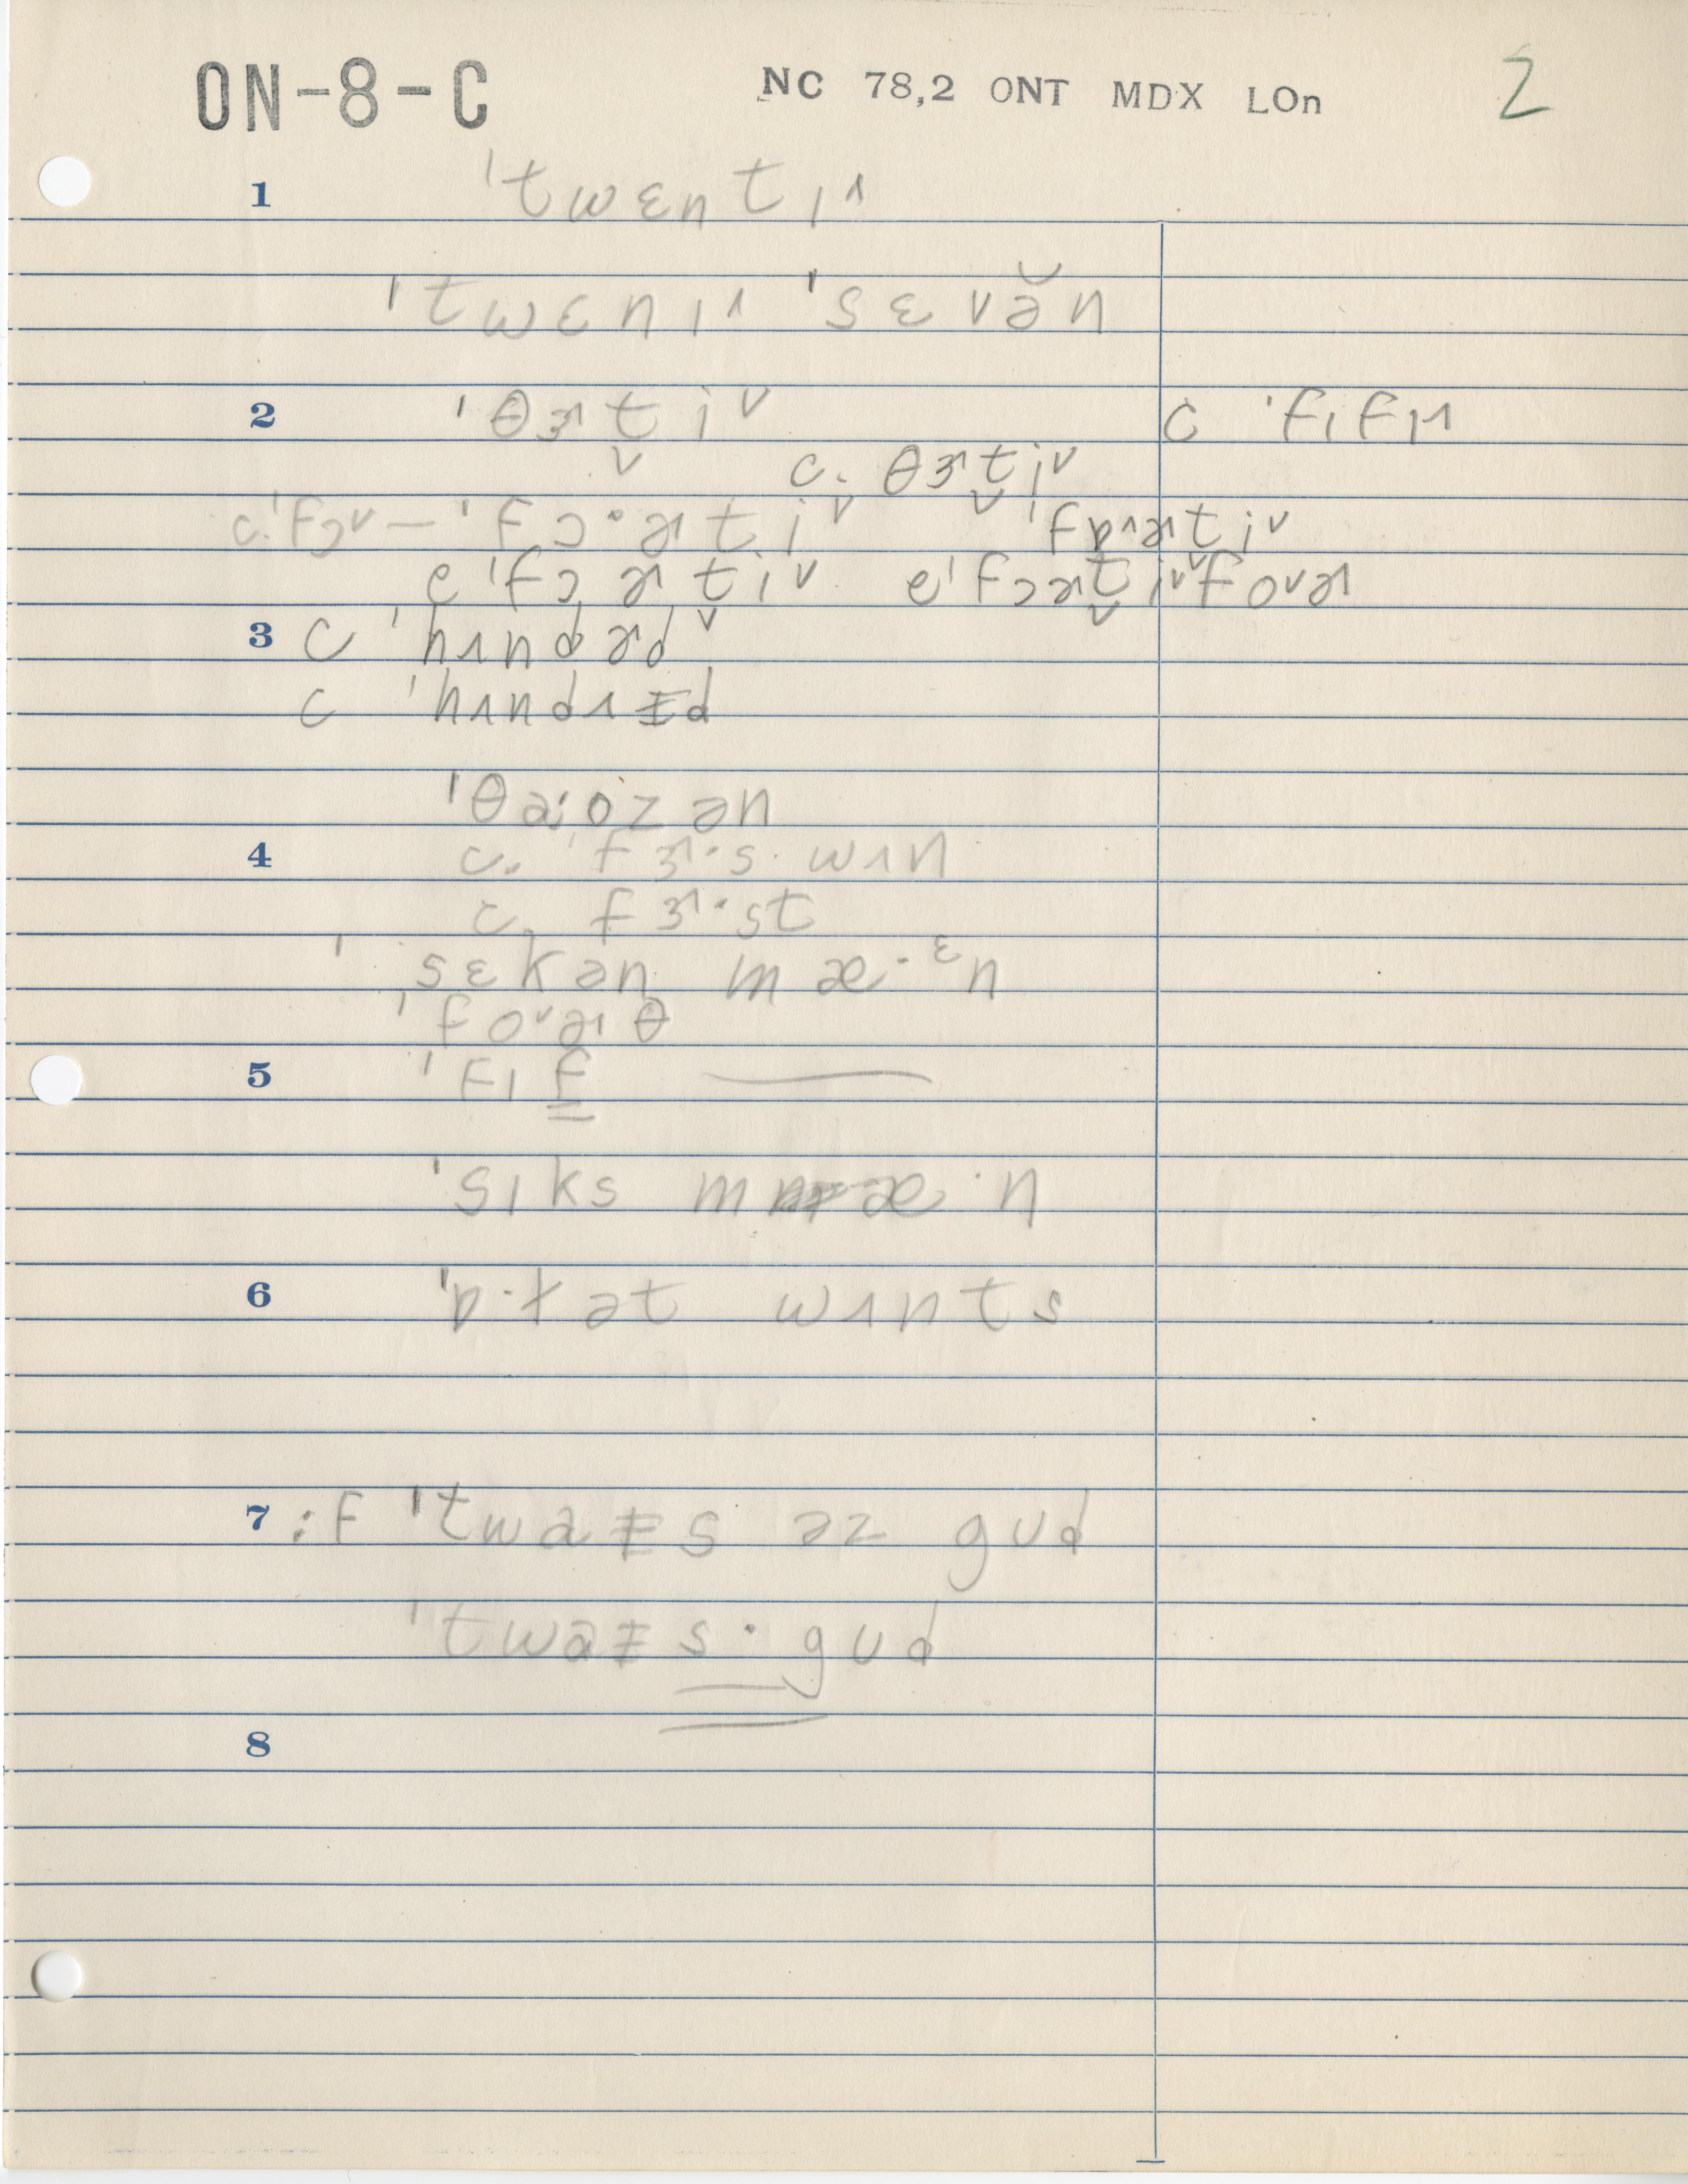 ON-8-C NC 78,2 ONT MDX LOn 2
1 ˈtwɛntɪ˄
ˈtwɛnɪ˄ ˈsɛvə̆n
2 ˈθɝt̬i˅ c ˈfɪfɪ˄
c. θɝt̬i˅
c.ˈfɔ˅ — ˈfɔ·ɚti˅ ˈfɒ˄ɚt̬i˅
e ˈfɔɚti˅ e ˈfɔɚt̬i˅foʊɚ
3 c ˈhʌndɚd˅
c ˈhʌndɹɨd
ˈθaːozən
4 c. ˈfɝ·s wʌn
c. fɝ·st
ˈsɛkən mæ·ᵋn
ˈfo˅ɚθ
5 ˈfɪf
ˈsɪks mæ·n
6 ˈɒ·ɫət wʌnts
7 :F ˈtwaɨs əz gud
ˈtwaɨs· gud
8